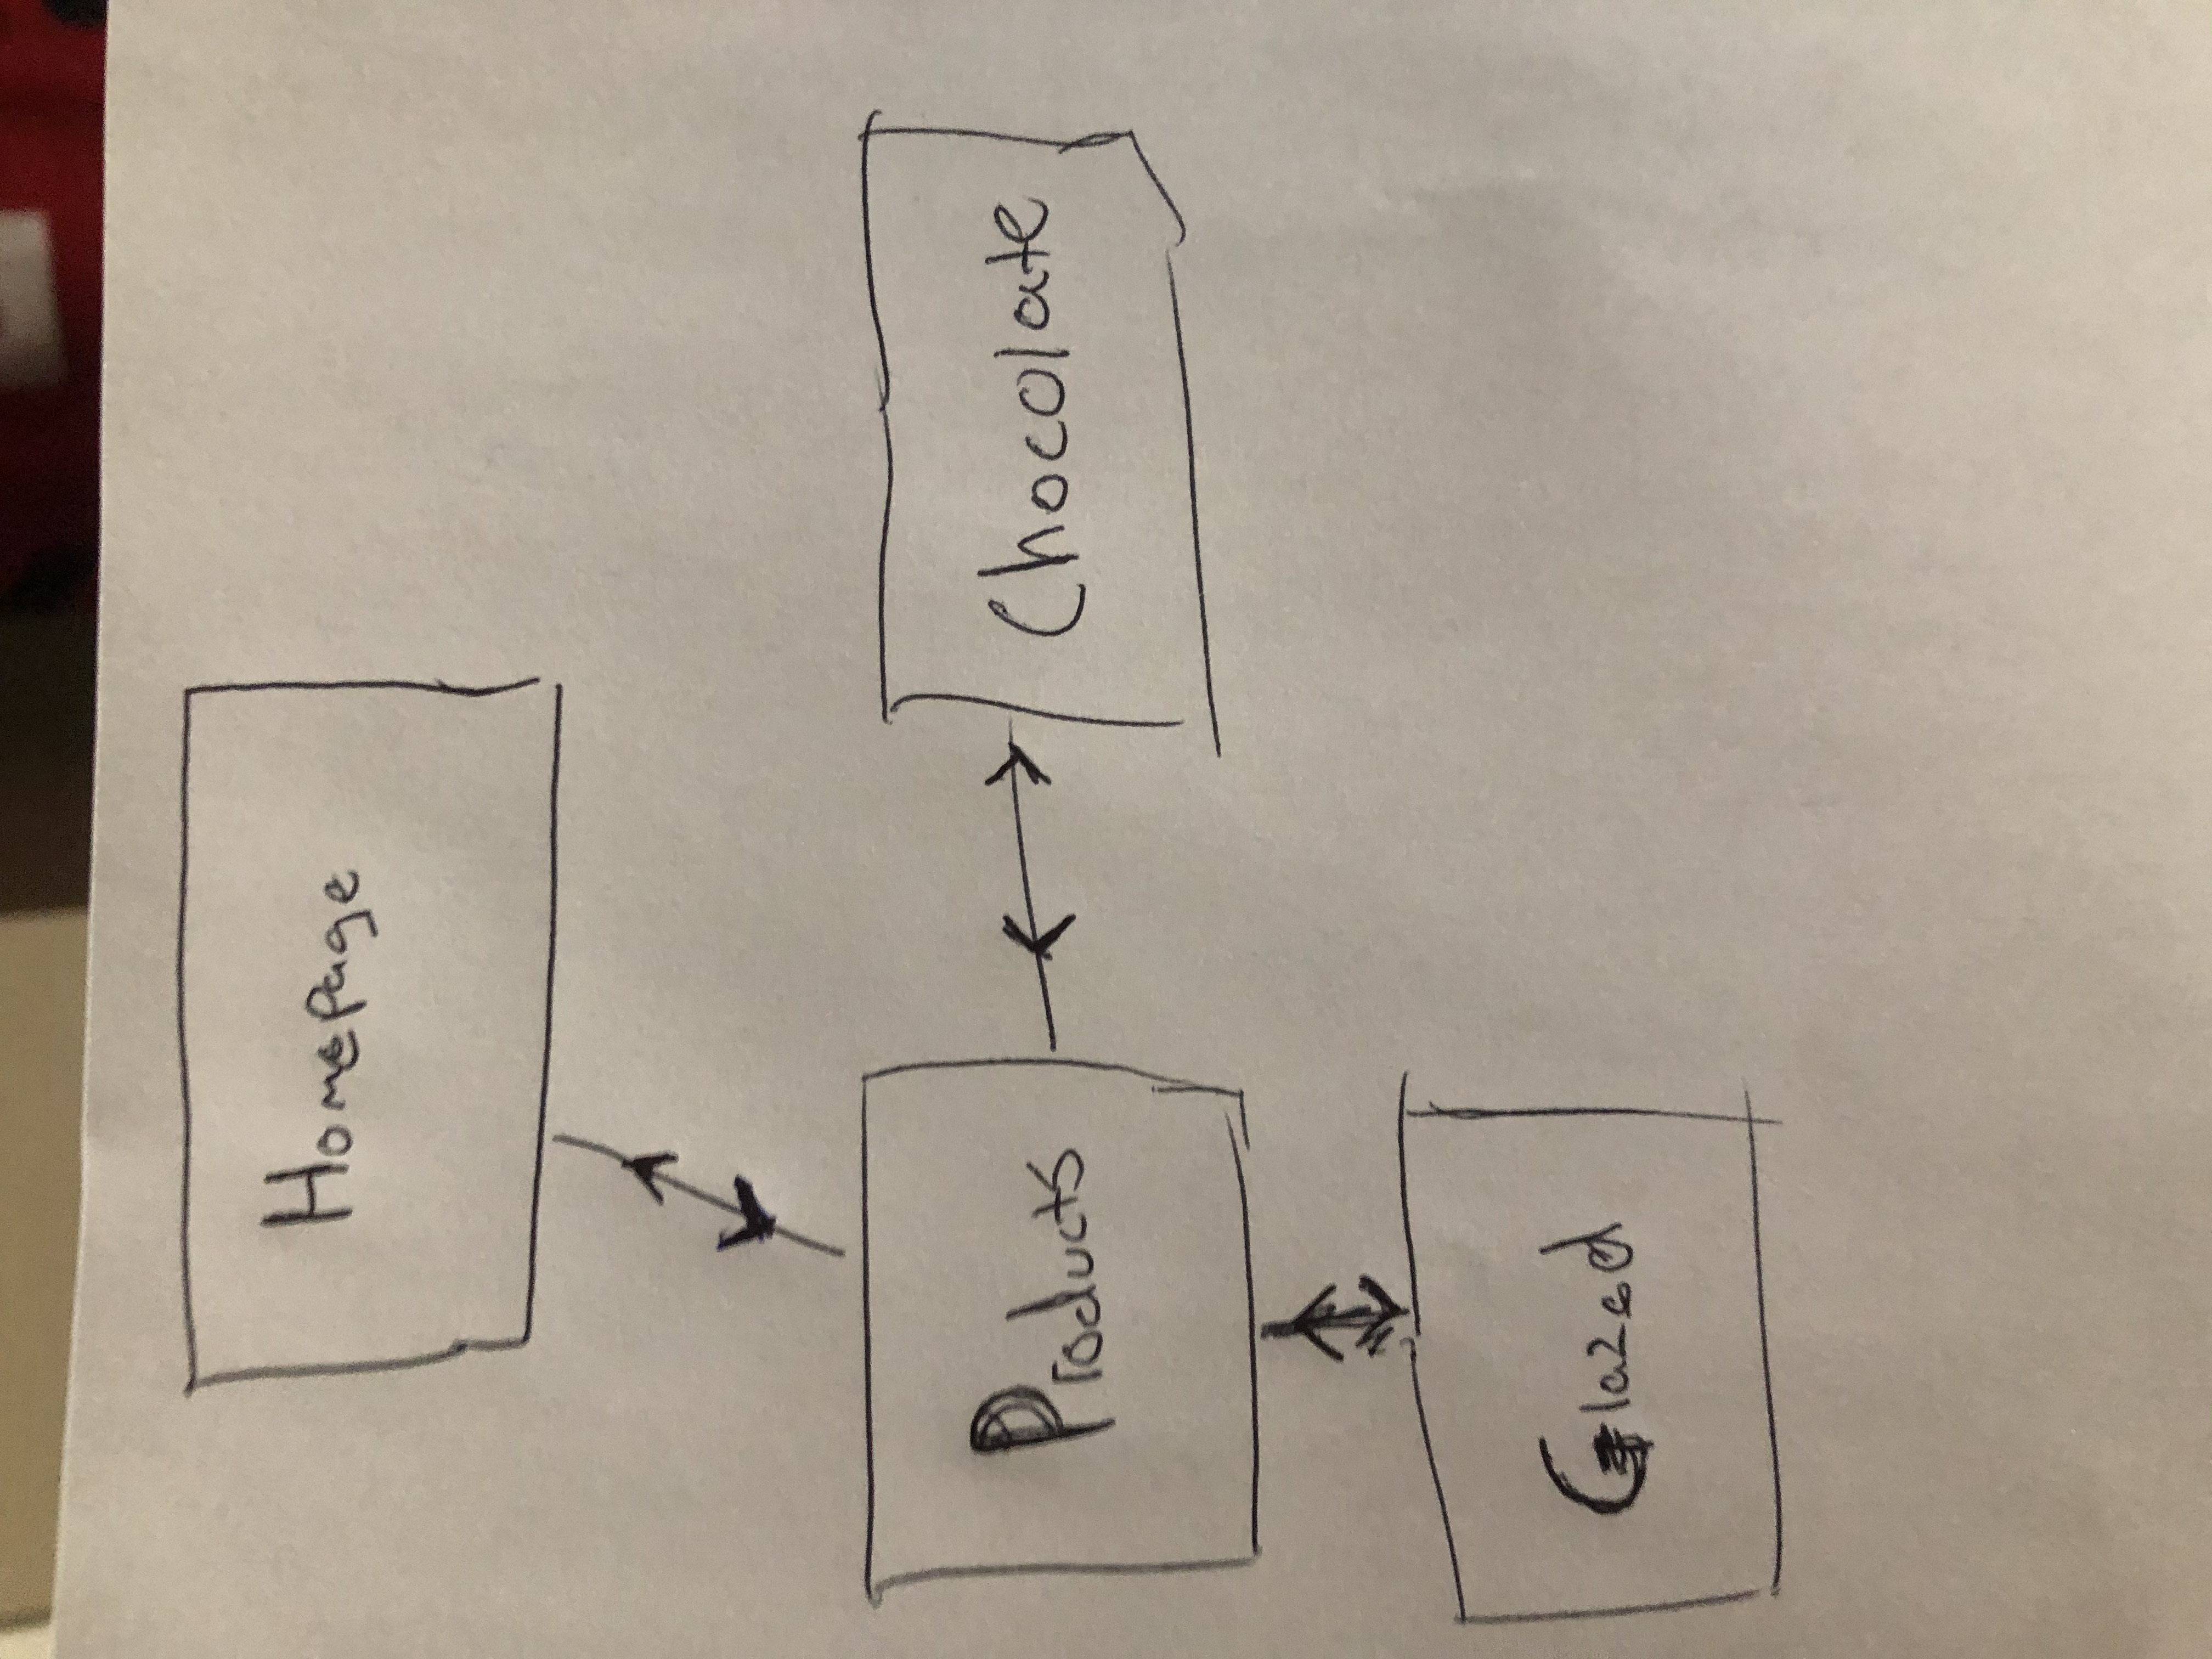 Homepage
Products
Chocolate
Glazed